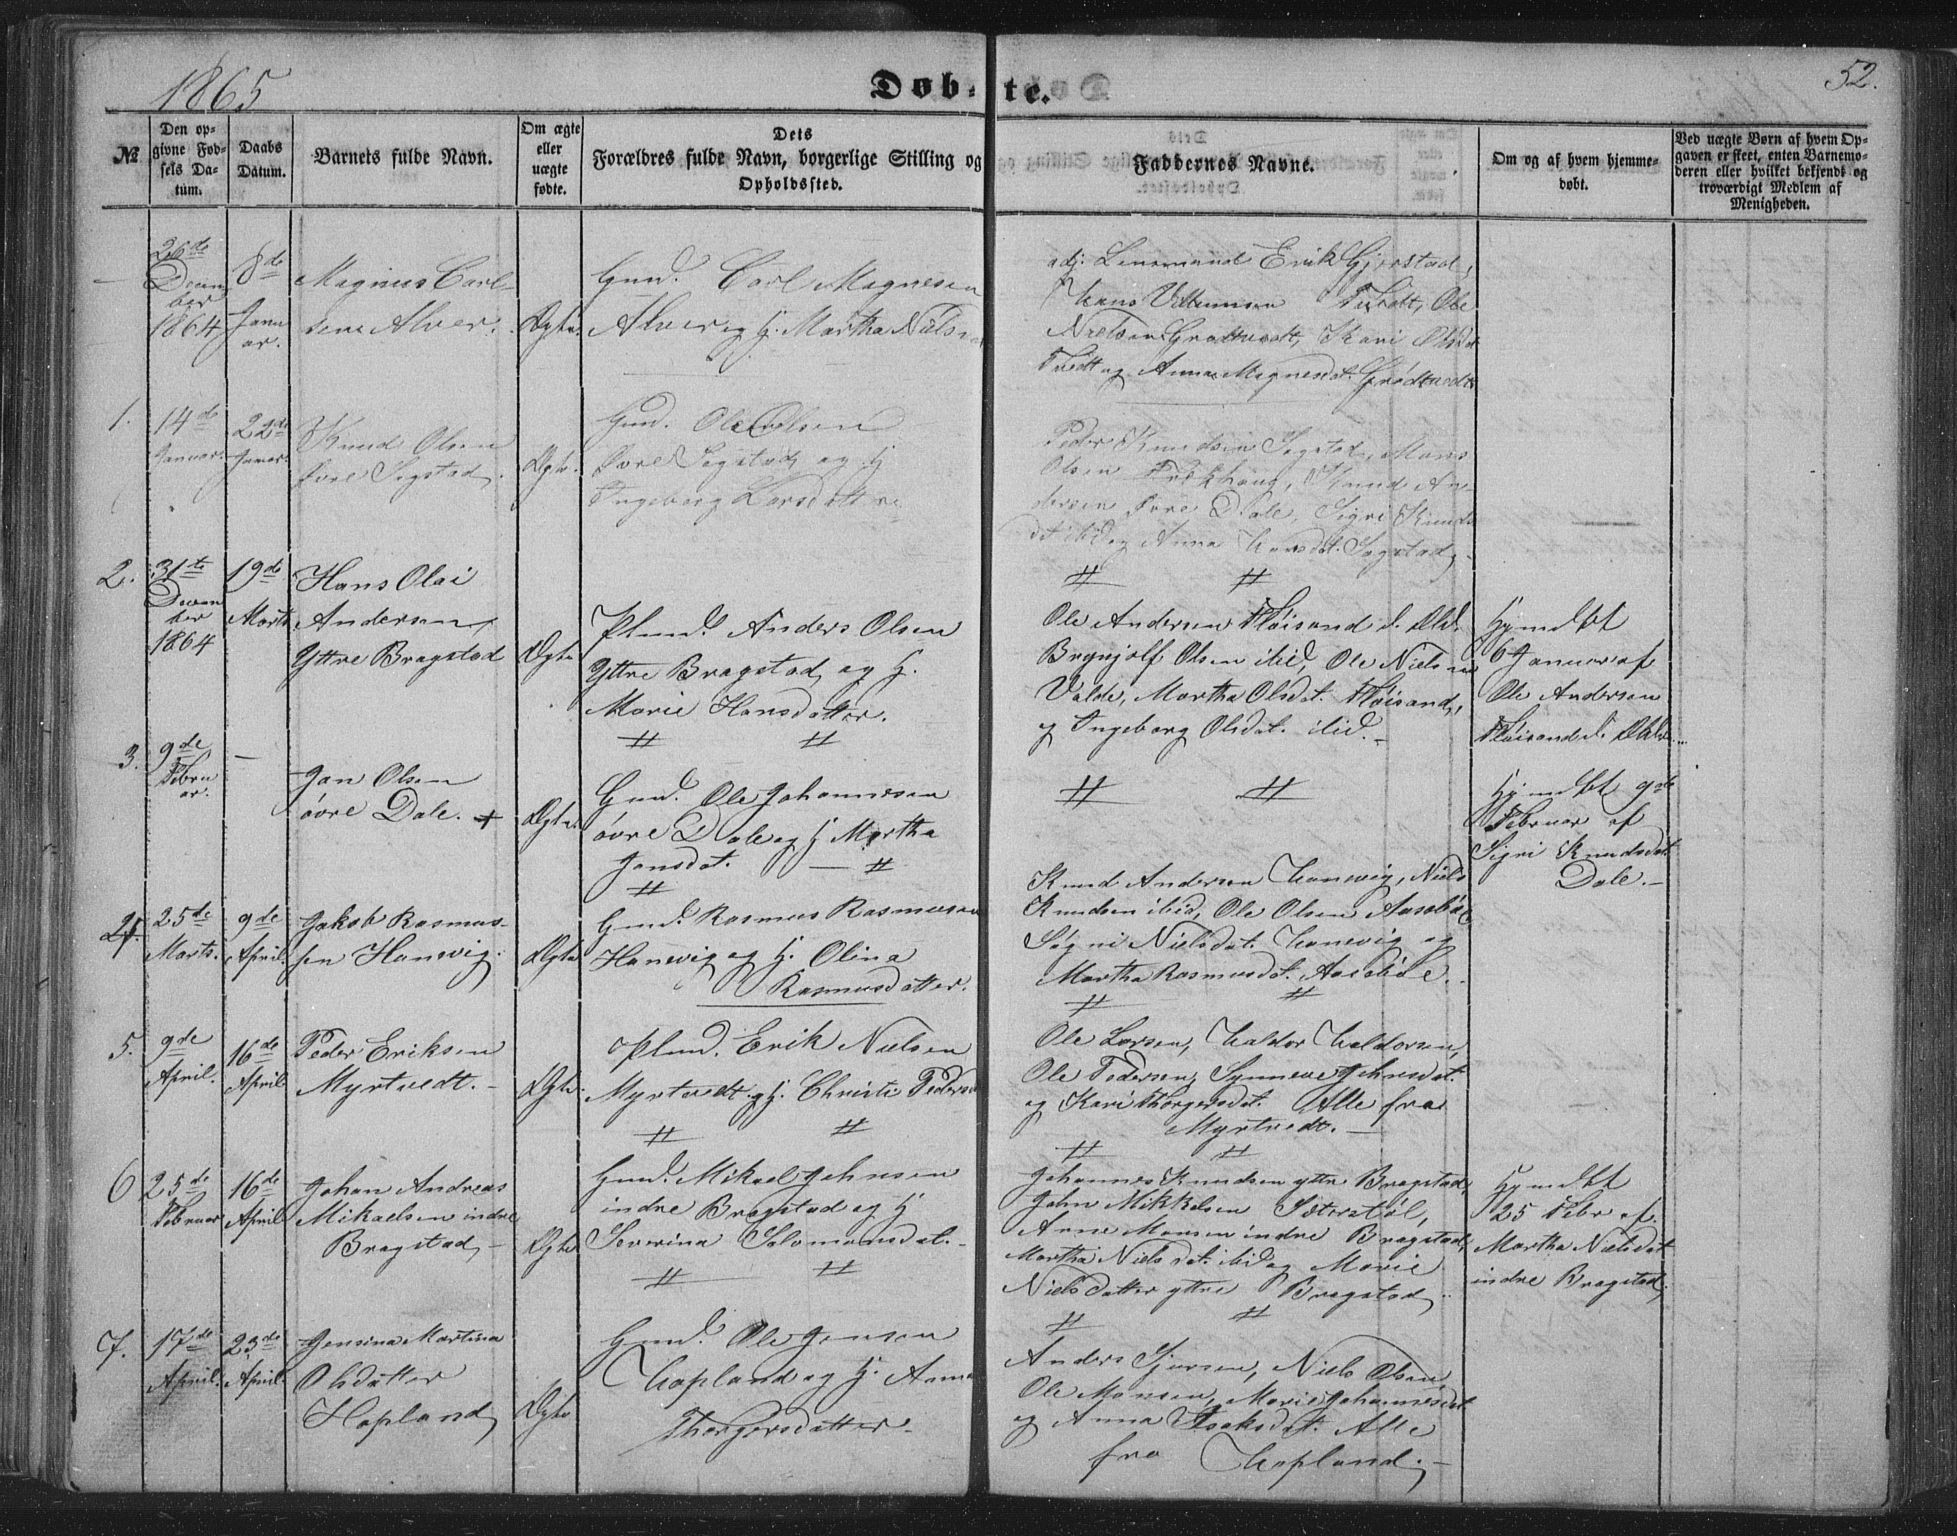 1865
Døbte.
52.
№
Den op-
givne Fød-
sels Da-
tum.
Daabs
Datum.
Barnets fulde Navn.
Om ægte
eller
uægte
fødte.
Dets
Forældres fulde Navn, borgerlige Stilling og
Opholdssted.
Faddernes Navne.
Om og af hvem hjemme-
døbt.
Ved uægte Børn af hvem Op-
gaven er skeet, enten Barnemo-
deren eller hvilket bekjendt og
troværdigt Medlem af
Menigheden.
26de
Decem
ber
1864
8de
Janu
ar.
Magnus Carl
sen Alver.
Ægte.
Gmd. Carl Magnesen
Alver og H. Martha Niels
adj. Lensmand Erik Gjerstad,
Hans Tvedt, Ole
Nielsen Grødtvedt, Kari Olsd
Tvedt og Anna Magnesdt. Grødtvedt
1.
14de
Januar.
22de
Januar.
Knud Olsen
Øvre Sogstad.
Ægte.
Gmd. Ole Olsen
Øvre Sogstad og H
Ingeborg Larsdatter
Peder Knudsen Sogstad, Mons
Olsen Knud An-
dersen Øvre Dale, Sigri Knuds
dt ibid og Anna Hansdt. Sogstad
2.
31te
Decem
ber
1864
19de
Marts
Hans Olai
Andersen
Yttre Bragstad
Ægte
Plmd. Anders Olsen
Yttre Bragstad og H.
Marie Hansdatter.
Ole Andersen Fløisand d. Æld.
Brynjolf Olsen ibid, Ole Nielsen
Valde, Martha Olsdat. Fløisand,
og Ingeborg Olsdat. ibid.
Hjmdbt
6 Januar af
Ole Andersen
Fløisand d. Æld
3.
9de
Febru
ar.
—
Jan Olsen
øvre Dale. +
Ægte.
Gmd. Ole Johannesen
øvre Dale og H Martha
Jansdat. —
Hjmdbt 9de
Februar af
Sigri Knudsdt.
Dale.
4.
25de
Marts.
9de
April.
Jakob Rasmus-
sen Hanevig.
Ægte
Gmd. Rasmus Rasmussen
Hanevig og H. Olina
Rasmusdatter.
Knud Andersen Hanevig, Niels
Knudsen ibid, Ole Olsen Aasebøe
Søgni Nielsdat. Hanevig og
Martha Rasmusdat. Aasebøe.
5.
9de
April.
16de
April
Peder Eriksen
Myrtvedt.
Ægte.
Oplmd. Erik Nielsen
Myrtvedt og H. Christi Peders
Ole Larsen, Haldor Haldorsen,
Ole Pedersen, Synneve Johnsdat.
og Kari Thorgersdat. Alle fra
Myrtvedt.
6
25de
Februar
16de
April
Johan Andreas
Mikaelsen indre
Bragstad
Ægte
Gmd. Mikael Johnsen
indre Bragstad og H
Severina Salomonsdat.
Johannes Knudsen yttre Bragstad,
John Mikkelsen Sæterstøl,
Arne Monsen indre Bragstad,
Martha Nielsdat ibid og Marie
Nielsdatter yttre Bragstad.
Hjmdbt
25 Febr af
Martha Nielsdat
indre Bragstad.
7.
17de
April.
23de
April.
Jensina Martina
Olsdatter
Hopland
Ægte
Gmd. Ole Jensen
Hopland og H. Anna
Thorgersdatter.
Anders Sjursen, Niels Olsen
Ole Monsen, Marie Johannesdt
og Anna Isaksdat. Alle
fra Hopland.